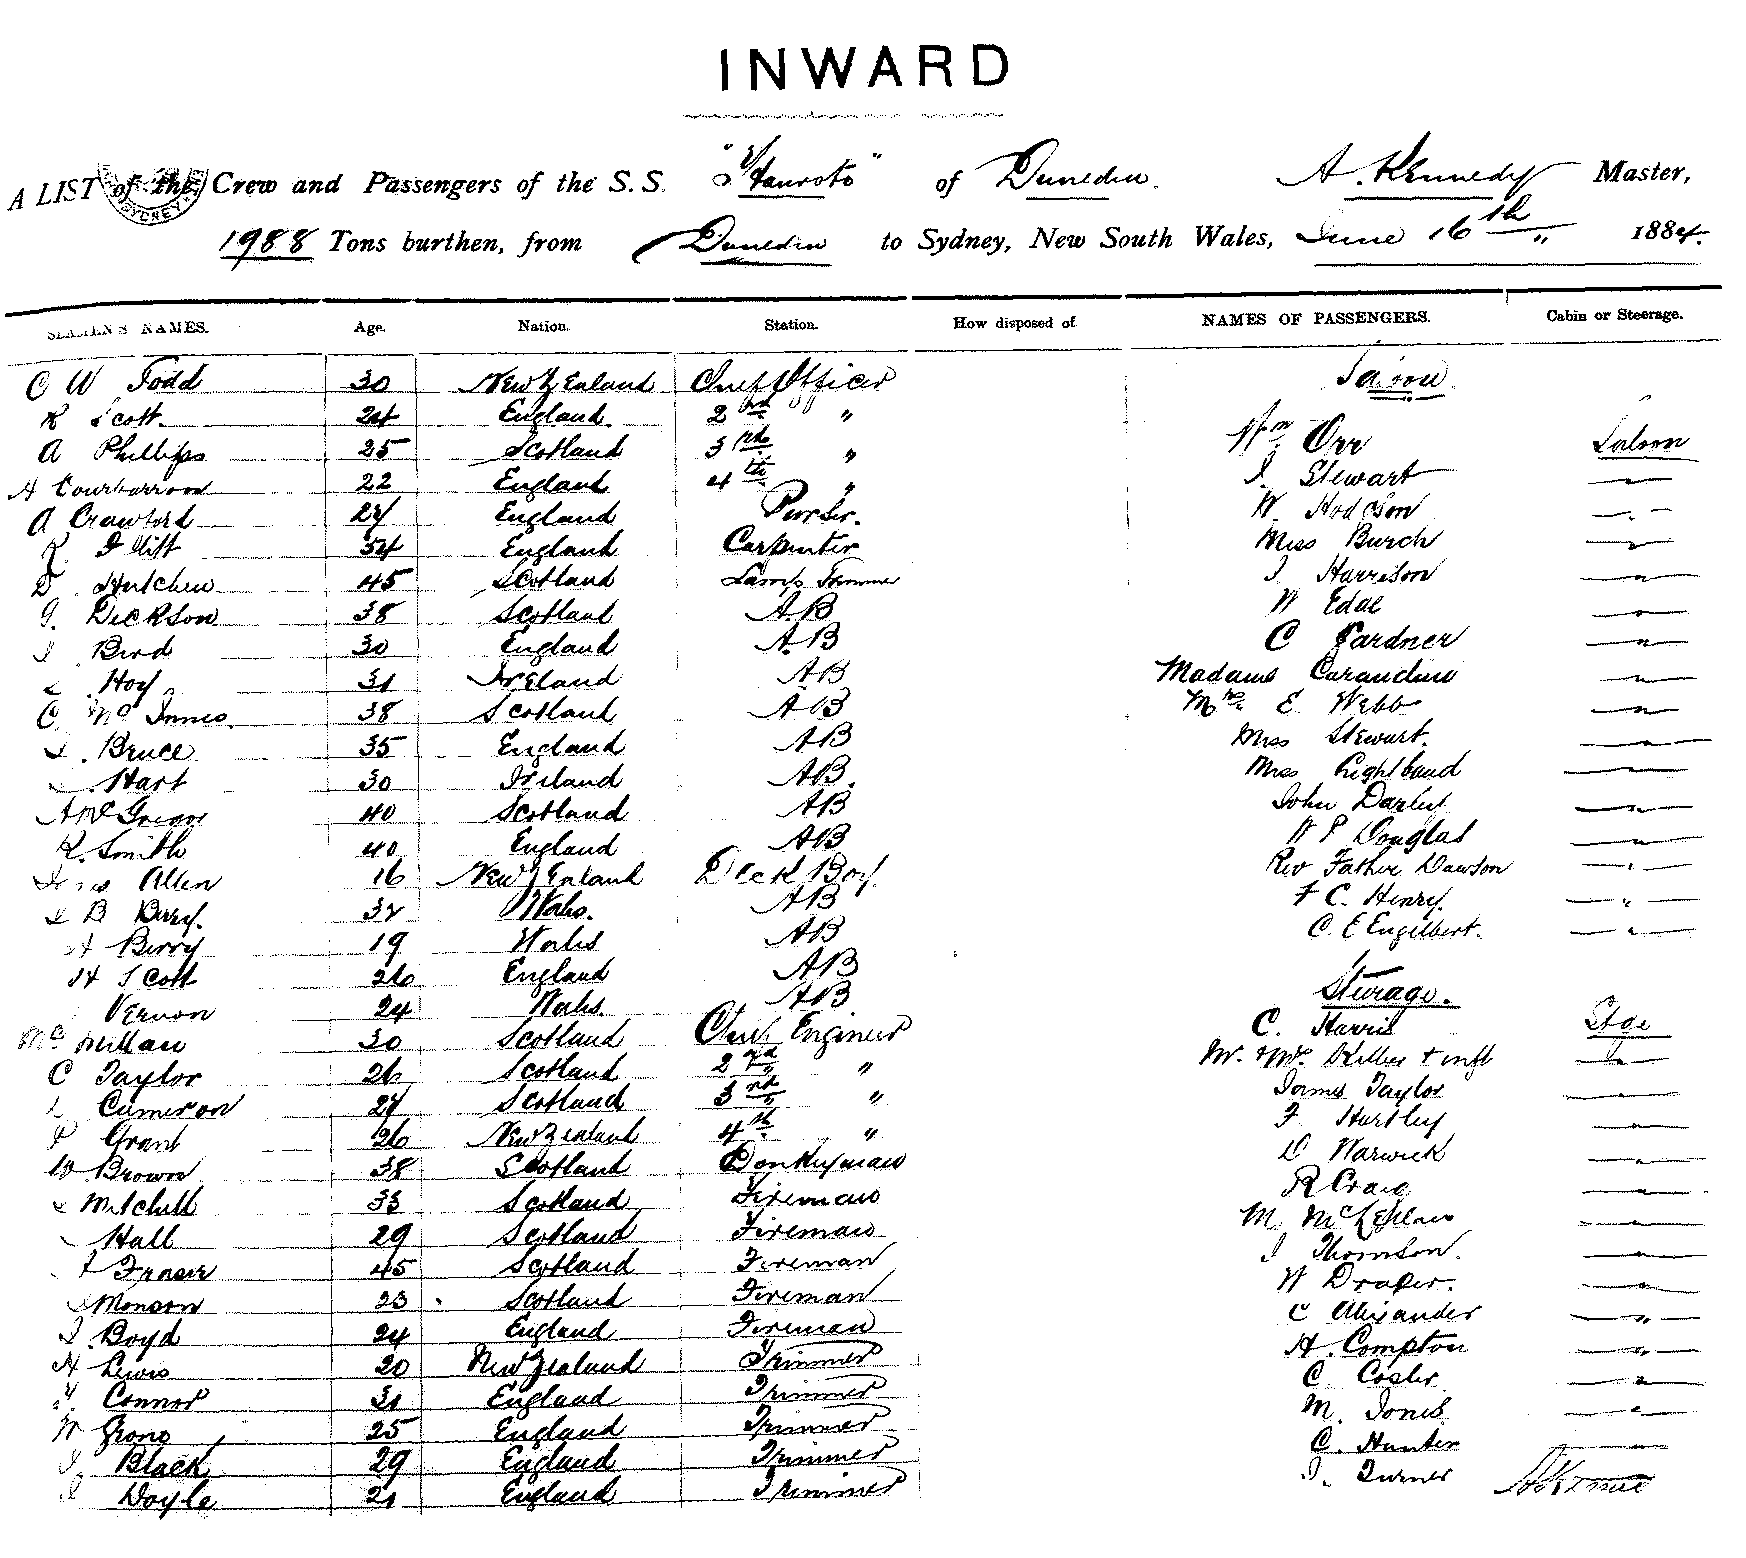 INWARD
A LIST of the Crew and Passengers of the S.S. "Hauroto" of Dunedin. A. Kennedy Master,
SYDNEY
1988 Tons burthen, from Dunedin to Sydney, New South Wales, June 16th 1884.
SEAMEN'S NAMES. Age. Nation. Station. How disposed of. NAMES OF PASSENGERS. Cabin or Steerage.
C W Todd 30 New Zealand Chief Officer
Saloon
R Scott 24 England 2nd "
Wm Orr Saloon
A Phillips 25 Scotland 3rd "
J. Stewart "
A 22 England 4th "
W. Hodgson "
A Crawford England Purser.
Miss Burch "
54 England Carpenter
J Harrison "
D. Hutchen 45 Scotland Lamp Trimmer
W Edae "
J. Dickson 38 Scotland AB
C Gardner "
J Bird 30 England AB
Madame Carandini "
Hoy 31 Ireland AB
Mrs E Webb "
C McInnes 38 Scotland AB
Miss Stewart. "
J. Bruce 35 England AB
Miss Lightband "
Hart 30 Ireland AB
John Darley "
A McGregor 40 Scotland AB
W P Douglas "
R. Smith 40 England AB
Rev Father Dawson "
Allen 16 New Zealand Deck Boy
F C. Henry. "
B Berry. 32 Wales. AB
C. E Engelbert. "
A Berry 19 Wales AB
H Scott 26 England AB
Steerage.
Vernon 24 Wales. AB
C. Harris Stge
McMillan 30 Scotland Chief Engineer
Mr & Mrs & inft "
C Taylor 26 Scotland 2nd "
James Taylor "
Cameron 24 Scotland 3rd "
F Hartley "
P Grant 26 New Zealand 4th "
D Warwick "
W Brown 38 Scotland Donkeyman
R Craig "
Mitchell 33 Scotland Fireman
M McLellan "
Hall 29 Scotland Fireman
J Thomson. "
Fraser 45 Scotland Fireman
W Draper. "
Monson 23 Scotland Fireman
C Alexander "
J. Boyd 24 England Fireman
A. Compton "
A Lewis 20 New Zealand Trimmer
C Coster "
Connor 31 England Trimmer
M. Jones "
W 25 England Trimmer
C. Hunter "
J Black 29 England Trimmer
J. Turner
J Doyle 21 England Trimmer